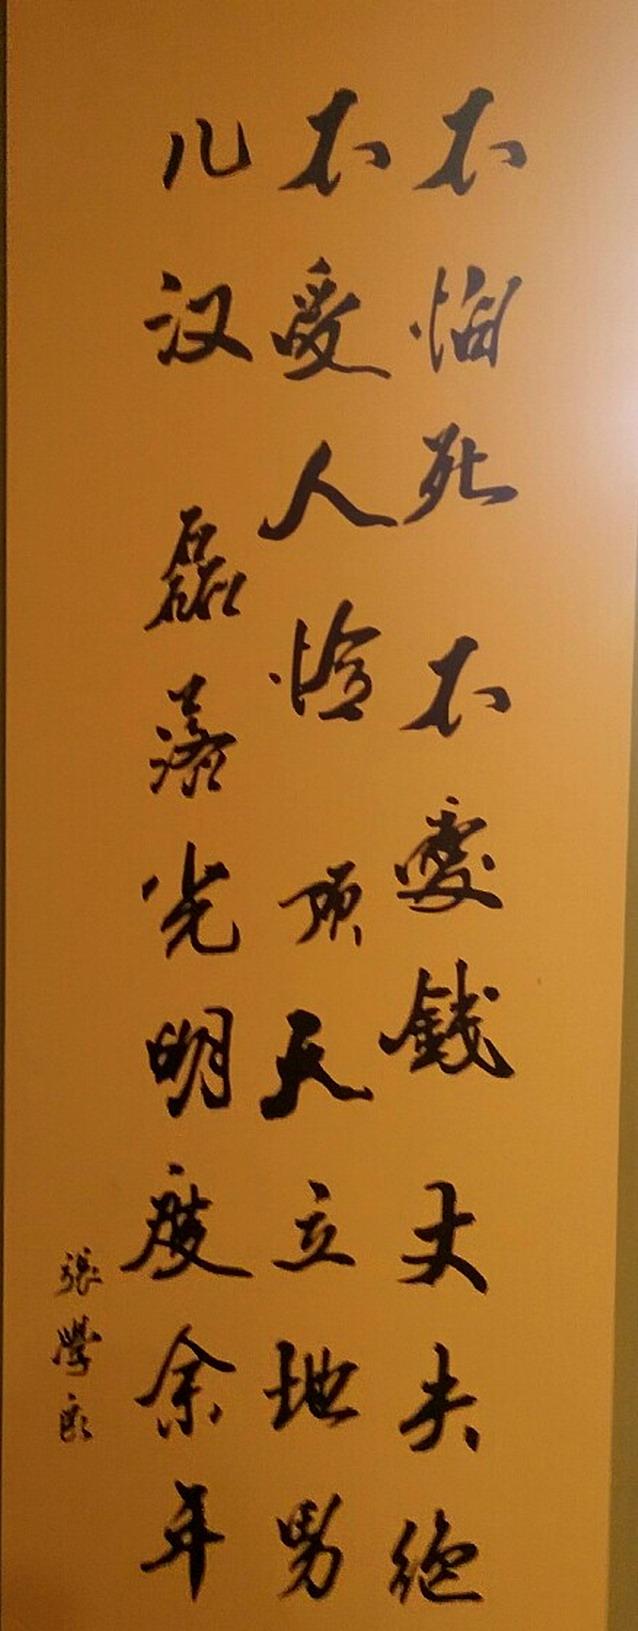 不怕死 不愛錢 丈夫絕
不受人怜 顶天立地男
儿汉 磊落光明度余年
張學良